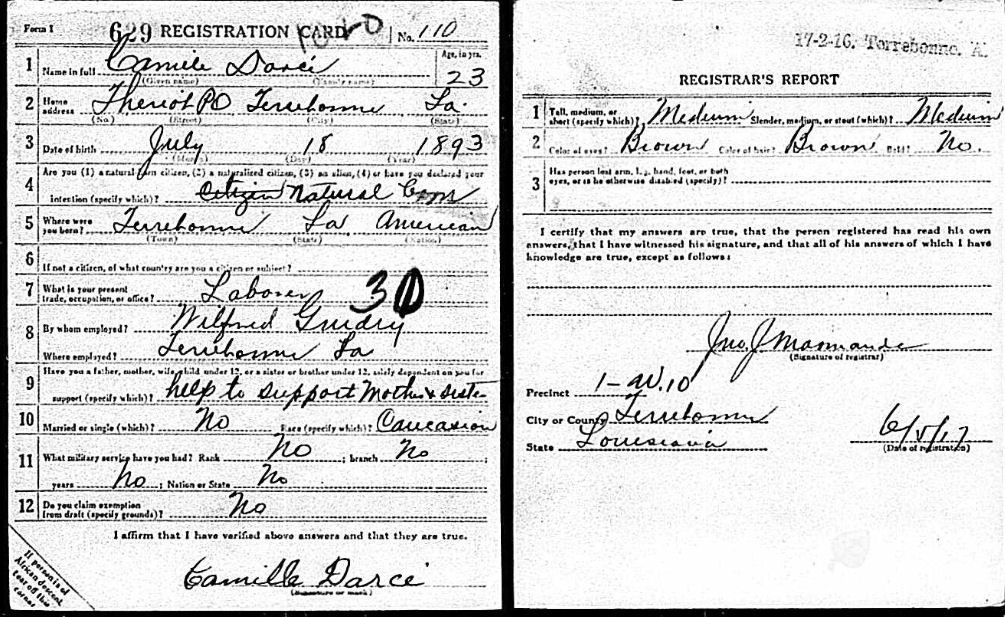 Form 1 629 REGISTRATION CARD No. 110
1 Name in full Camille Darce Age, in yrs. 23
(Given name) (Family name)
2 Home address Theriot PO Terrebonne La.
(No.) (Street) (City) (State)
3 Date of birth July 18 1893
(Month) (Day) (Year)
4 Are you (1) a natural-born citizen, (2) a naturalized citizen, (3) an alien, (4) or have you declared your
intention (specify which)? Natural Born
5 Where were you born? Terrebonne La American
(Town) (State) (Nation)
6 If not a citizen, of what country are you a citizen or subject?
7 What is your present trade, occupation, or office? Laborer 30
8 By whom employed? Wilfred Guidry
Where employed? Terrebonne La
9 Have you a father, mother, wife, child under 12, or a sister or brother under 12, solely dependent on you for
support (specify which)? help to support Mother & Sister
10 Married or single (which)? No Race (specify which)? Caucasion
11 What military service have you had? Rank No ; branch No ;
years No ; Nation or State No
12 Do you claim exemption from draft (specify grounds)? No
I affirm that I have verified above answers and that they are true.
Camille Darce
(Signature or mark)
If person is of
African descent
tear off this
corner
17-2-16. Terrebonne, A.
REGISTRAR'S REPORT
1 Tall, medium, or short (specify which)? Medium Slender, medium, or stout (which)? Medium
2 Color of eyes? Brown Color of hair? Brown Bald? No.
3 Has person lost arm, leg, hand, foot, or both
eyes, or is he otherwise disabled (specify)?
I certify that my answers are true, that the person registered has read his own
answers, that I have witnessed his signature, and that all of his answers of which I have
knowledge are true, except as follows:
Jno. J.
(Signature of registrar)
Precinct 1-W.10
City or County Terrebonne
State Louisiana 6/5/17
(Date of registration)